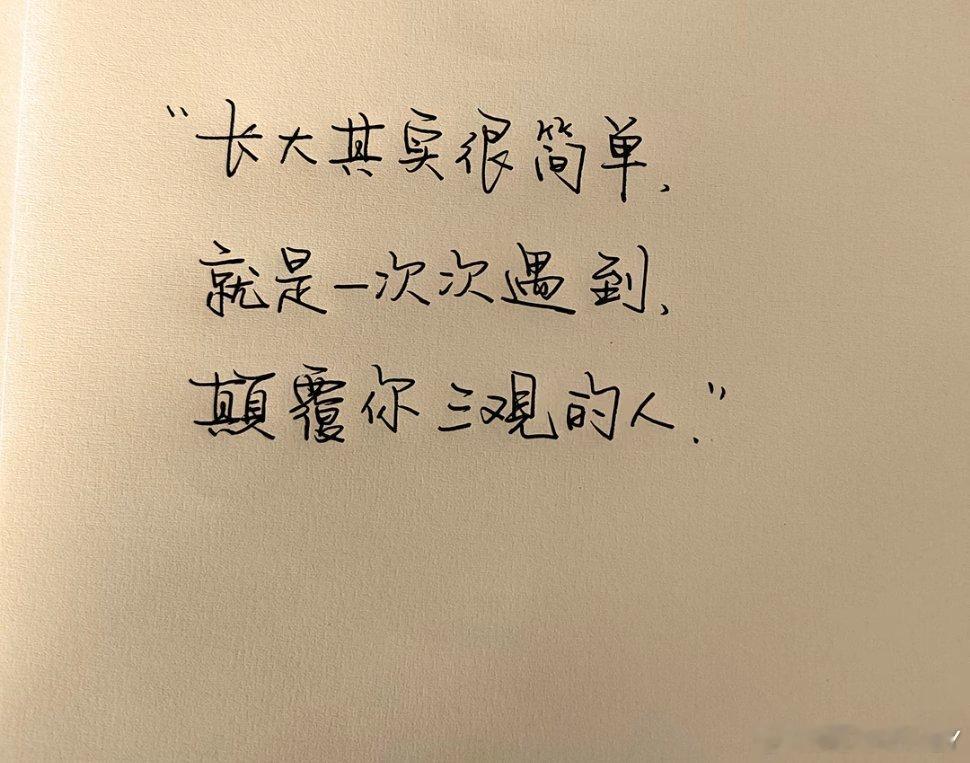 “长大其实很简单，
就是一次次遇到，
颠覆你三观的人.”